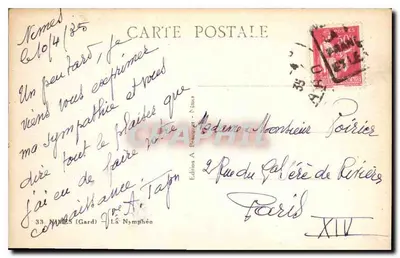 Nimes
le 10/4/35
CARTE POSTALE
Un peu tard, je
viens vous exprimer
ma sympathie et vous
dire tout le plaisir que
j'ai eu de faire votre
connaissance.
Vve A.
33. NIMES (Gard) La Nymphée
Edition A
Nîmes
Madame Monsieur Poirier
2 Rue du Gal Céré de Rivières
Paris
XIV
35
Delcampe